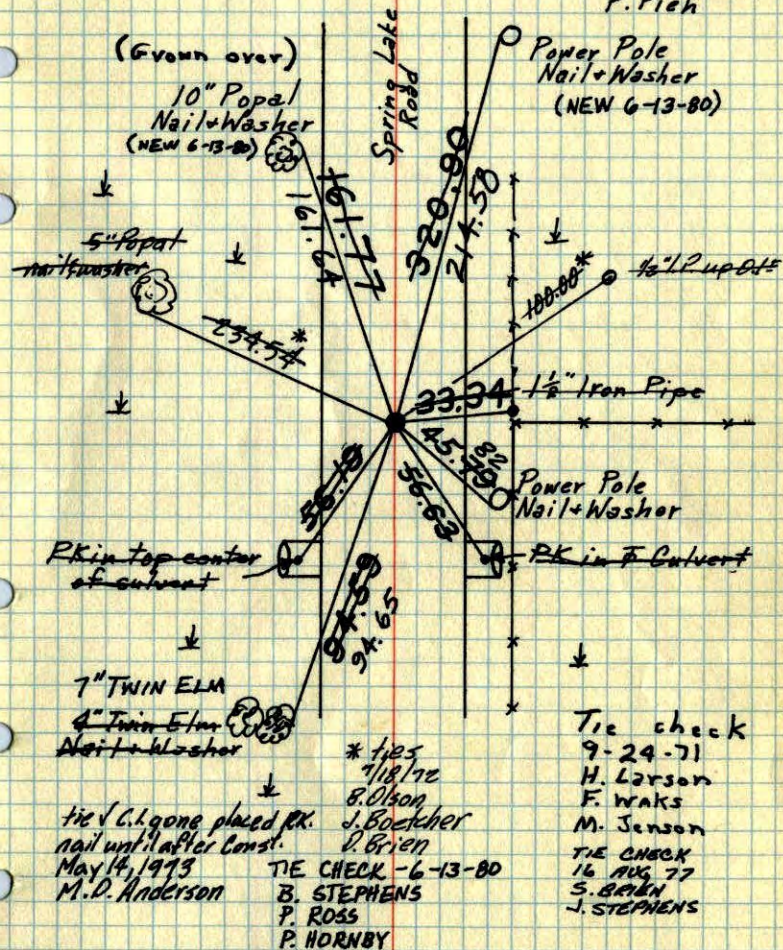 P. Pleh
(Grown over)
10" Popal
Nail + Washer
(NEW 6-13-80)
Spring Lake
Road
Power Pole
Nail + Washer
(NEW 6-13-80)
161.77
161.64
320.90
214.58
5" Popal
nail & washer
234.54*
100.00*
1/2" I.P. up 0.1±
33.34
1 1/2" Iron Pipe
45.79
82
Power Pole
Nail + Washer
56.19
56.63
P.K in top center
of culvert
P.K in Culvert
94.59
94.65
7" TWIN ELM
4" Twin Elm
Nail + Washer
* ties
7/18/72
B. Olson
J. Boetcher
D. Brien
tie √ C.I. gone placed P.K.
nail until after Const.
May 14, 1973
M.D. Anderson
TIE CHECK - 6-13-80
B. STEPHENS
P. ROSS
P. HORNBY
Tie check
9-24-71
H. Larson
F. Waks
M. Jenson
TIE CHECK
16 AUG 77
S. BRIEN
J. STEPHENS